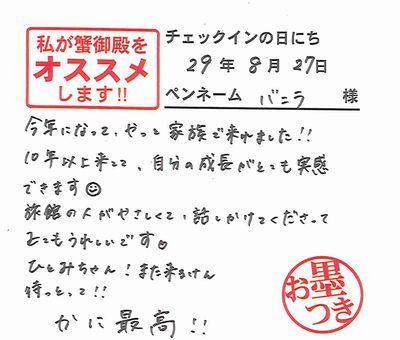 私が蟹御殿を
オススメ
します!!
チェックインの日にち
29年8月27日
ペンネーム バニラ 様
今年になって、やっと家族で来れました!!
10年以上来てて、自分の成長がとても実感
できます☺
旅館の人がやさしくて、話しかけてくださって
とてもうれしいです♡
ひとみちゃん!また来るけん
待っとって!!
かに最高!!
お墨つき